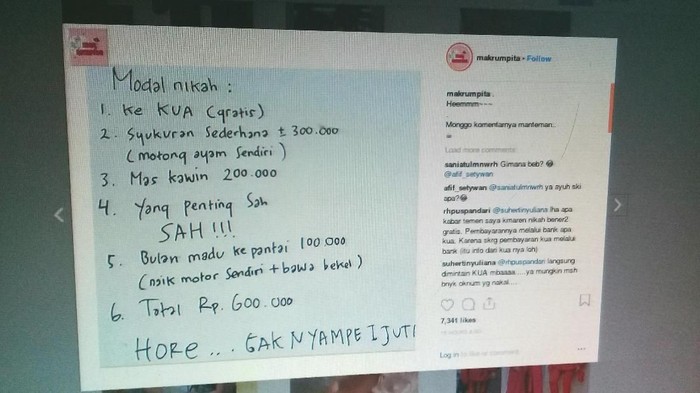 Modal nikah :
1. Ke KUA (gratis)
2. Syukuran Sederhana ± 300.000
(motong ayam Sendiri)
3. Mas kawin 200.000
4. Yang penting Sah
SAH !!!
5. Bulan madu ke pantai 100.000
(naik motor sendiri + bawa bekel)
6. Total Rp. 600.000
HORE ... GAK NYAMPE 1 JUTA
makrumpita • Follow
makrumpita .
Heemmm~~~
.
Monggo komentarnya manteman..
Load more comments
saniatulmnwrh Gimana beb?
@afif_setywan
afif_setywan @saniatulmnwrh ya ayuh ski
apa?
rhpuspandari @suhertinyuliana lha apa
kabar temen saya kmaren nikah bener2
gratis. Pembayarannya melalui bank apa
kua. Karena skrg pembayaran kua melalui
bank (itu info dari kua nya loh)
suhertinyuliana @rhpuspandari langsung
dimintain KUA mbaaaa....ya mungkin msh
bnyk oknum yg nakal....
7,341 likes
Log in to like or comment.